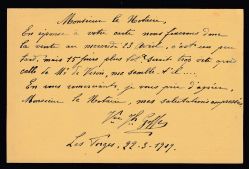 Monsieur le Notaire,
En réponse à votre carte nous fixerons donc
la vente au mercredi 23 avril, c'est un peu
tard, mais 15 jours plus tôt serait trop tôt après
celle de Mr de, me semble t'il....
En vous remerciant, je vous prie d'agréer,
Monsieur le Notaire, mes salutations empressées
Les Forges, 22-3-1919.